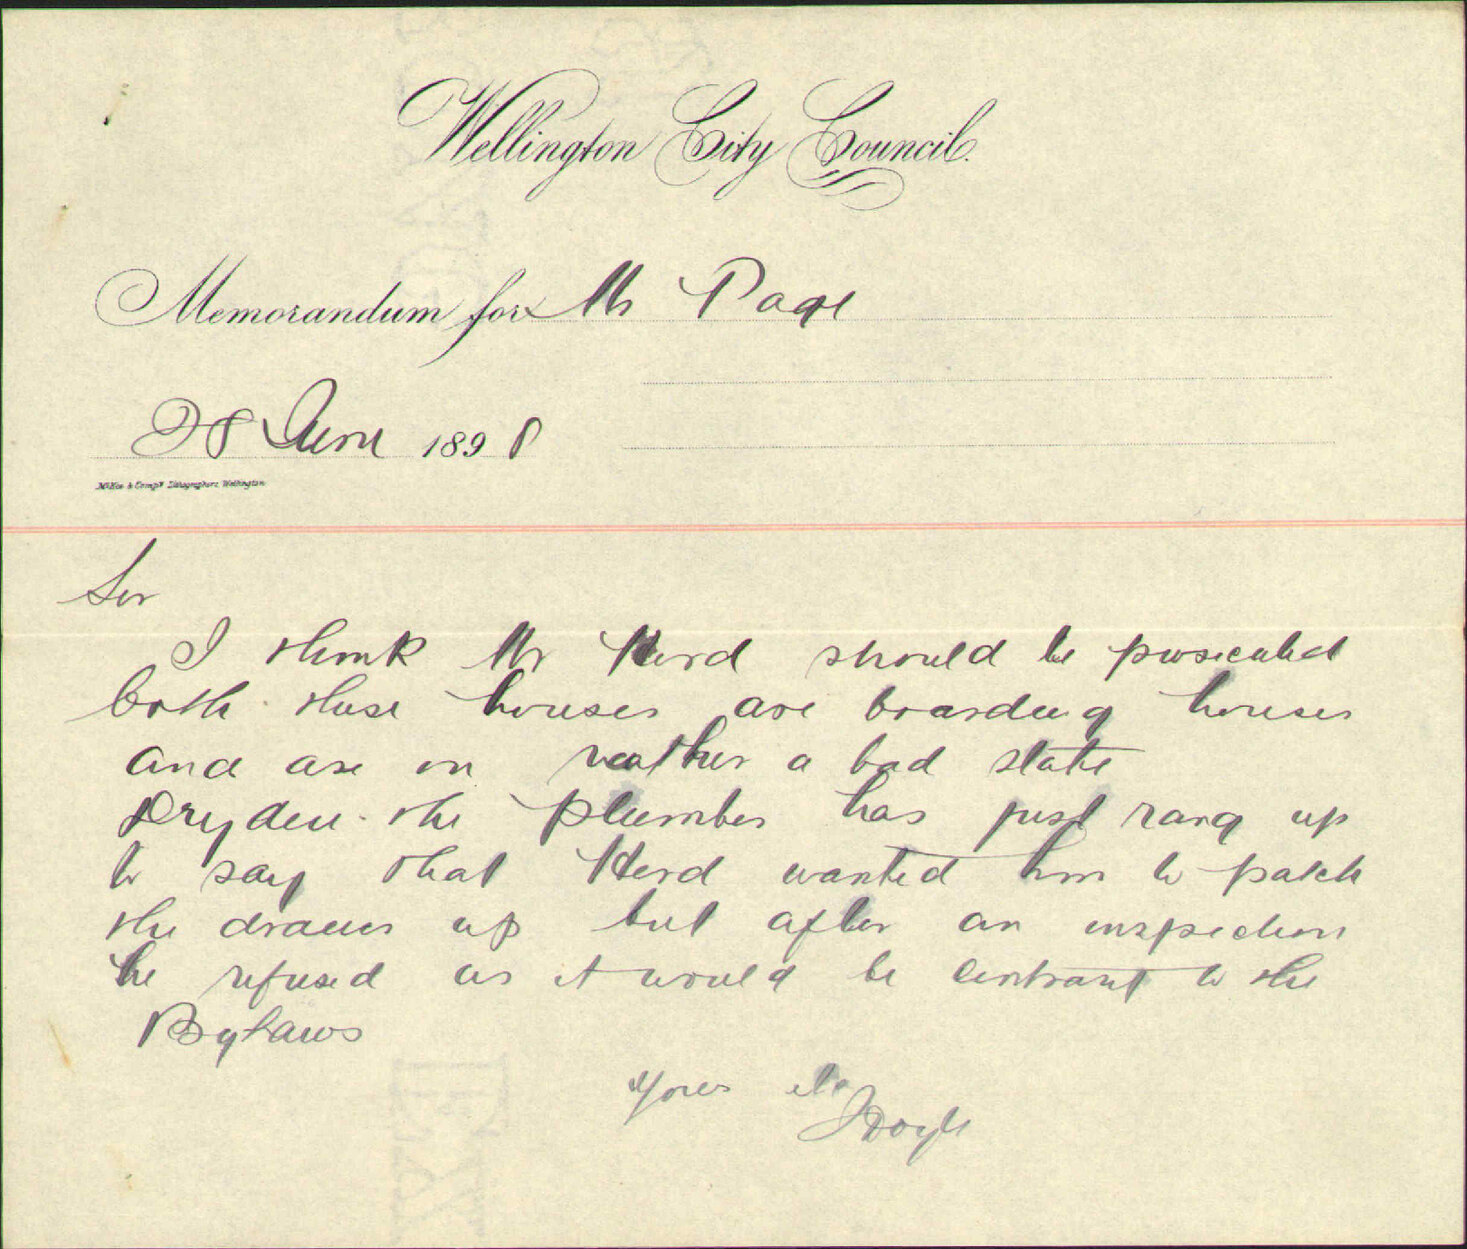 Wellington City Council.
Memorandum for Mr Page
28 June 1898
McKee & Compy Lithographers Wellington
Sir
I think Mr Herd should be prosecuted
both these houses are boarding houses
and are in rather a bad state
Dryden the plumber has just rang up
to say that Herd wanted him to patch
the drains up but after an inspection
he refused as it would be contrary to the
Bylaws
Yours
J Doyle